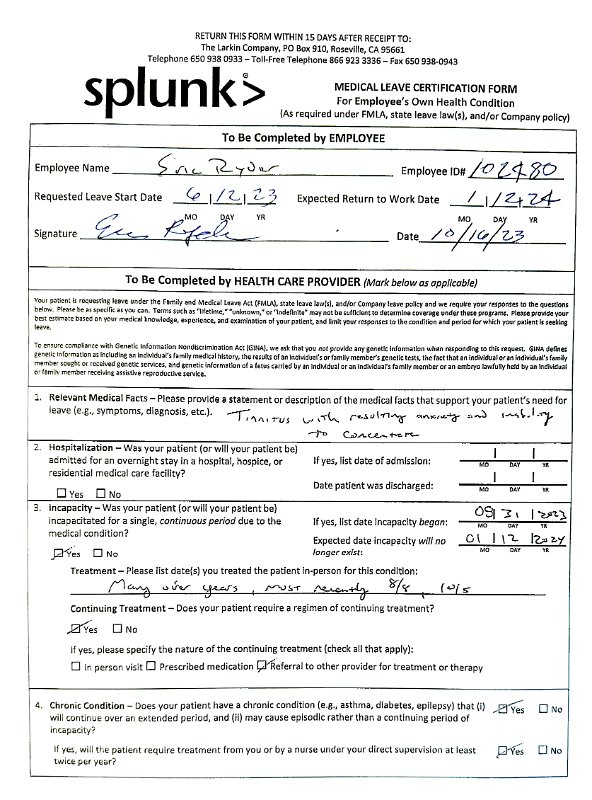 RETURN THIS FORM WITHIN 15 DAYS AFTER RECEIPT TO:
The Larkin Company, PO Box 910, Roseville, CA 95661
Telephone 650 938 0933 – Toll-Free Telephone 866 923 3336 – Fax 650 938-0943
splunk>
MEDICAL LEAVE CERTIFICATION FORM
For Employee's Own Health Condition
(As required under FMLA, state leave law(s), and/or Company policy)
To Be Completed by EMPLOYEE
Employee Name Eric Ryder Employee ID# 102480
Requested Leave Start Date 6/2/23 Expected Return to Work Date 1/2/24
MO DAY YR MO DAY YR
Signature Date 10/16/23
To Be Completed by HEALTH CARE PROVIDER (Mark below as applicable)
Your patient is requesting leave under the Family and Medical Leave Act (FMLA), state leave law(s), and/or Company leave policy and we require your responses to the questions
below. Please be as specific as you can. Terms such as "lifetime," "unknown," or "indefinite" may not be sufficient to determine coverage under these programs. Please provide your
best estimate based on your medical knowledge, experience, and examination of your patient, and limit your responses to the condition and period for which your patient is seeking
leave.
To ensure compliance with Genetic Information Nondiscrimination Act (GINA), we ask that you not provide any genetic information when responding to this request. GINA defines
genetic information as including an individual's family medical history, the results of an individual's or family member's genetic tests, the fact that an individual or an individual's family
member sought or received genetic services, and genetic information of a fetus carried by an individual or an individual's family member or an embryo lawfully held by an individual
or family member receiving assistive reproductive service.
1. Relevant Medical Facts – Please provide a statement or description of the medical facts that support your patient's need for
leave (e.g., symptoms, diagnosis, etc.). Tinnitus with resulting anxiety and inability
to concentrate
2. Hospitalization – Was your patient (or will your patient be)
admitted for an overnight stay in a hospital, hospice, or
residential medical care facility?
Yes No
If yes, list date of admission:
MO DAY YR
Date patient was discharged:
MO DAY YR
3. Incapacity – Was your patient (or will your patient be)
incapacitated for a single, continuous period due to the
medical condition?
Yes No
If yes, list date Incapacity began: 31 2023
MO DAY YR
Expected date incapacity will no
longer exist: 01 12 2024
MO DAY YR
Treatment – Please list date(s) you treated the patient in-person for this condition:
Many over years, most recently 8/8, 10/5
Continuing Treatment – Does your patient require a regimen of continuing treatment?
Yes No
If yes, please specify the nature of the continuing treatment (check all that apply):
In person visit Prescribed medication Referral to other provider for treatment or therapy
4. Chronic Condition – Does your patient have a chronic condition (e.g., asthma, diabetes, epilepsy) that (i)
will continue over an extended period, and (ii) may cause episodic rather than a continuing period of
incapacity?
Yes No
If yes, will the patient require treatment from you or by a nurse under your direct supervision at least
twice per year?
Yes No